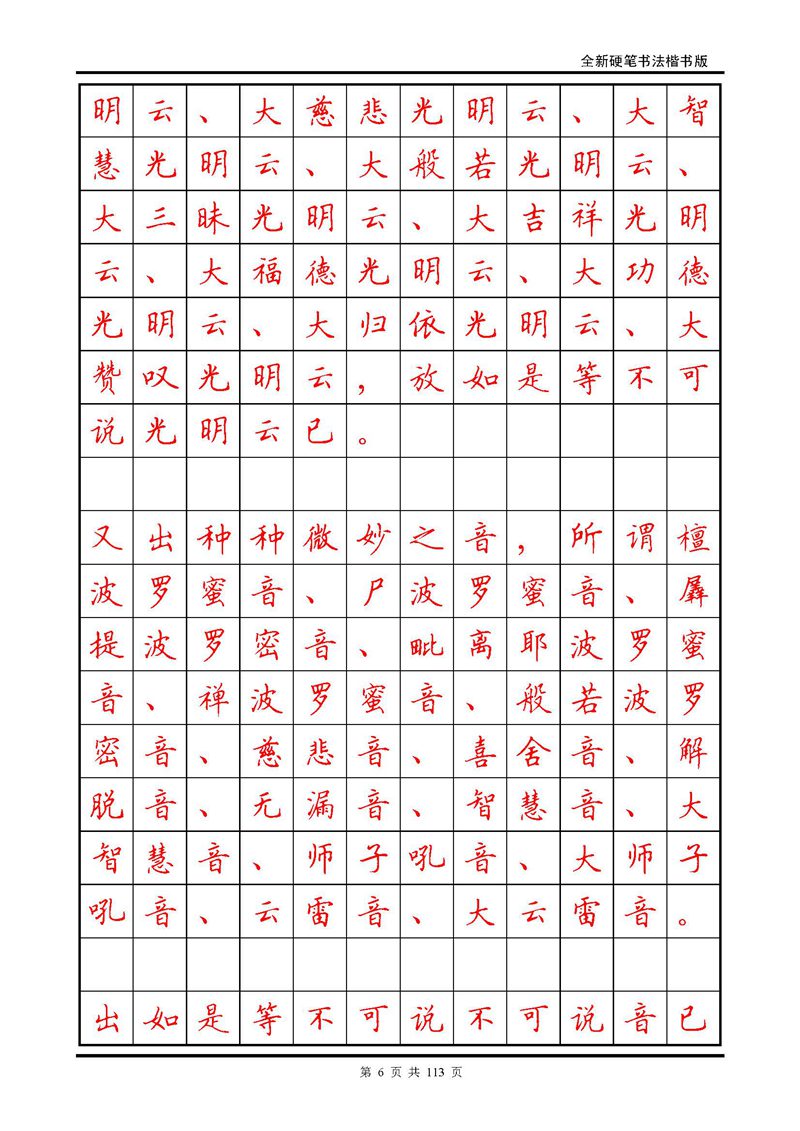 全新硬笔书法楷书版
明云、大慈悲光明云、大智
慧光明云、大般若光明云、
大三昧光明云、大吉祥光明
云、大福德光明云、大功德
光明云、大归依光明云、大
赞叹光明云，放如是等不可
说光明云已。
又出种种微妙之音，所谓檀
波罗蜜音、尸波罗蜜音、羼
提波罗密音、毗离耶波罗蜜
音、禅波罗蜜音、般若波罗
密音、慈悲音、喜舍音、解
脱音、无漏音、智慧音、大
智慧音、师子吼音、大师子
吼音、云雷音、大云雷音。
出如是等不可说不可说音已
第 6 页 共 113 页